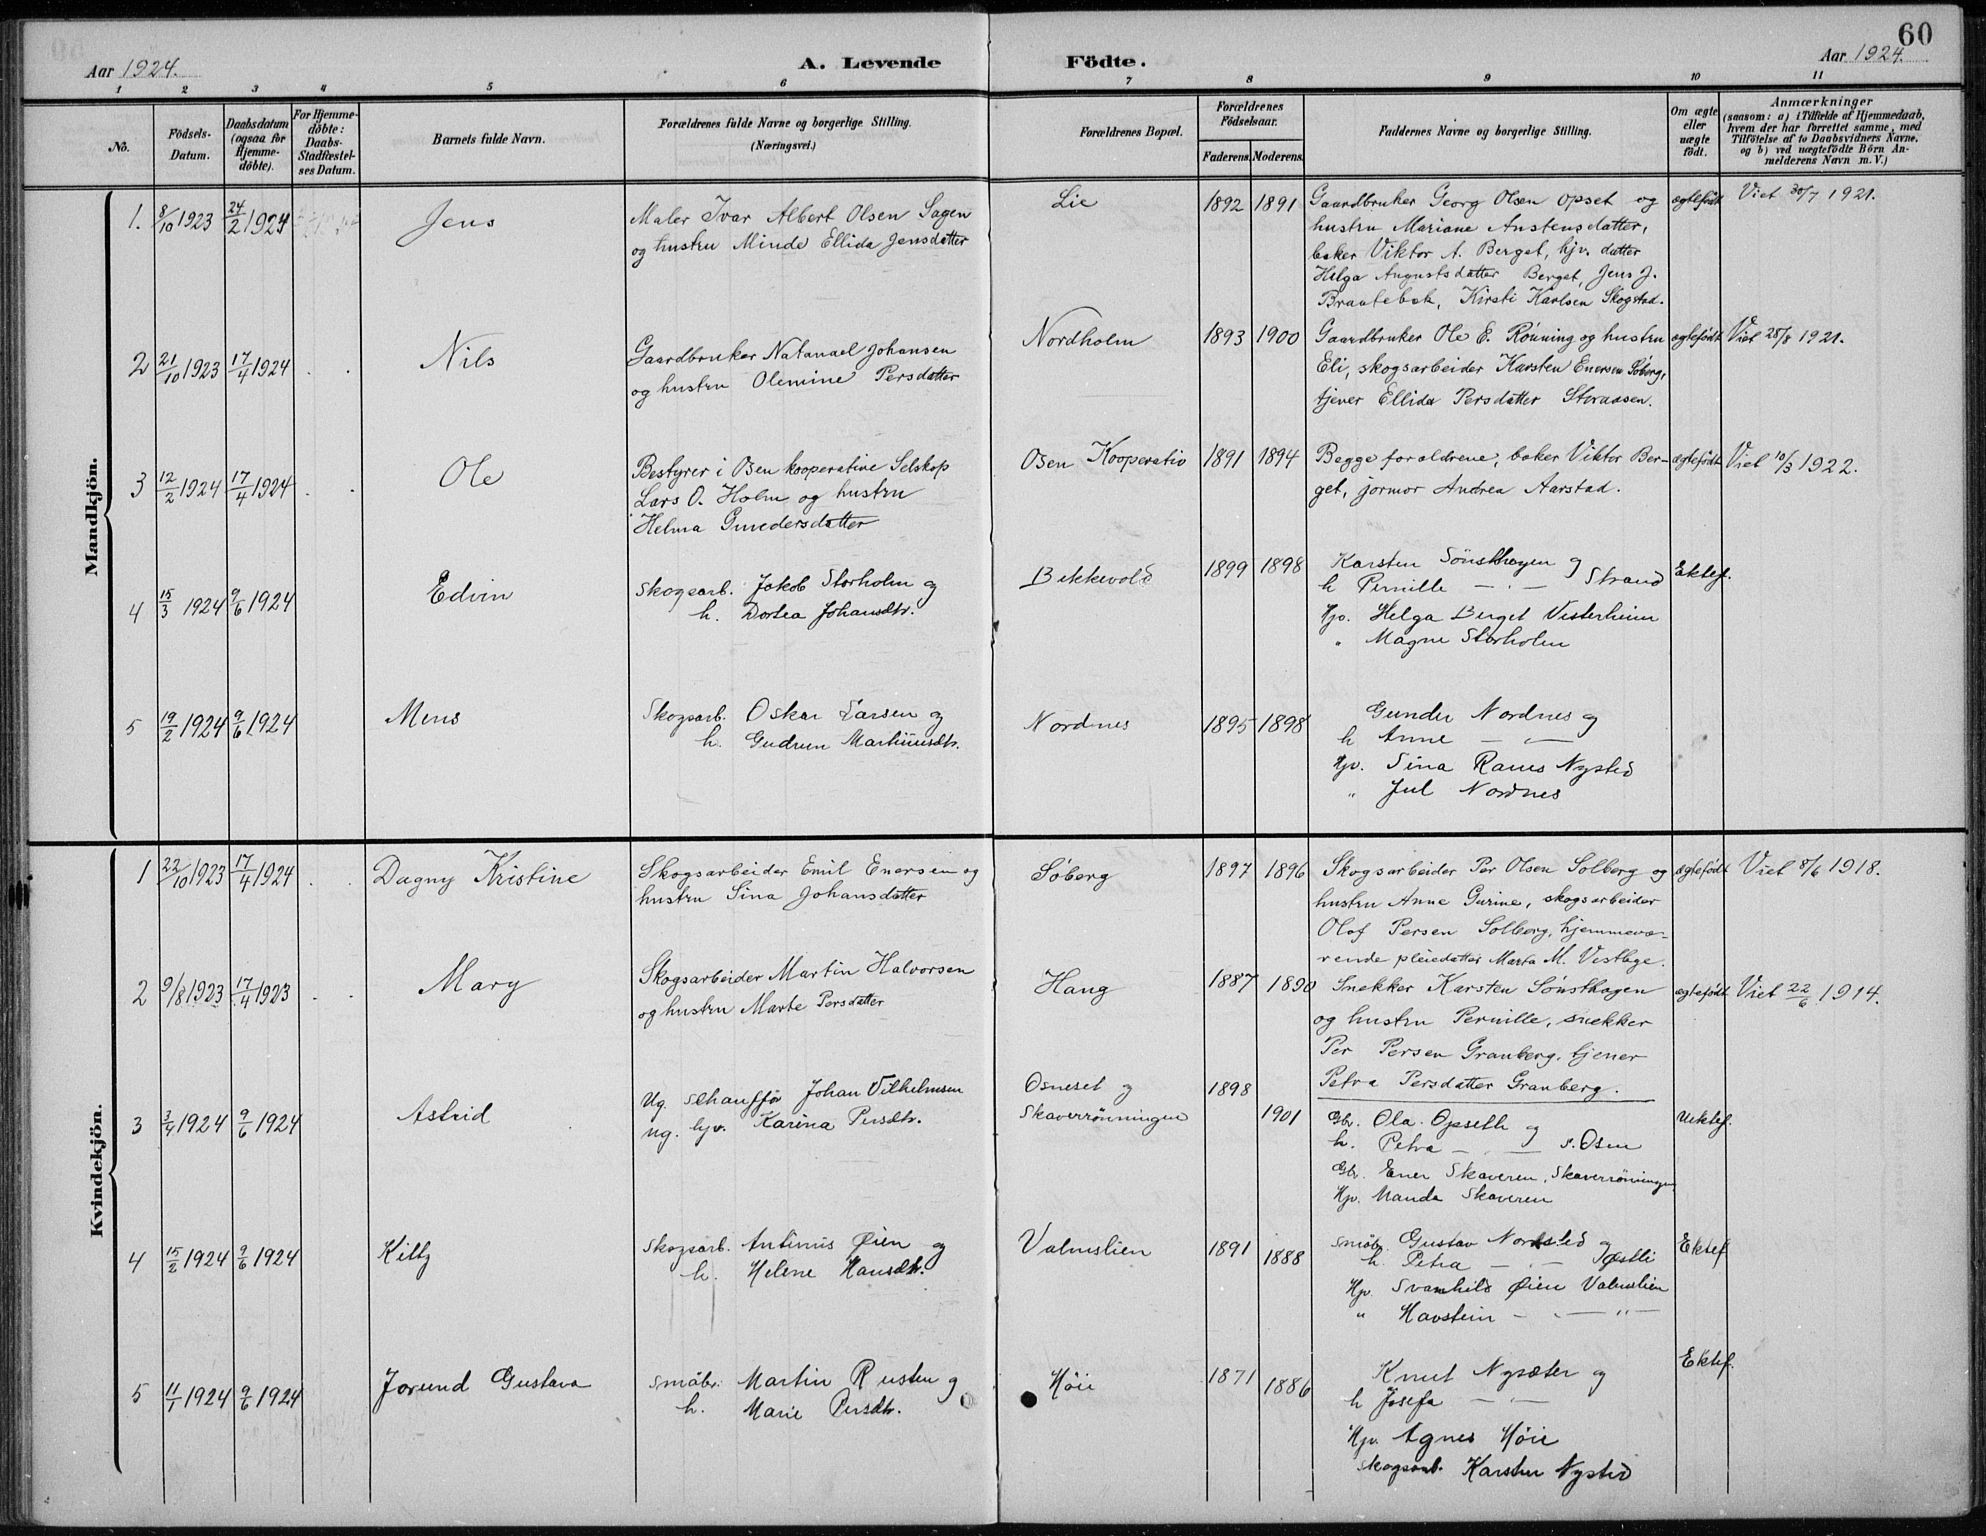 60
Aar 1924.
A. Levende Födte.
Aar 1924.
1 2 3 4 5 6 7 8 9 10 11
No.
Födsels-Datum.
Daabsdatum (ogsaa for Hjemme-döbte).
For Hjemme-döbte: Daabs-Stadfæstel-ses Datum.
Barnets fulde Navn.
Forældrenes fulde Navne og borgerlige Stilling.
(Næringsvei.)
Forældrenes Bopæl.
Forældrenes Födselsaar.
Faderens. Moderens.
Faddernes Navne og borgerlige Stilling.
Om ægte eller uægte födt.
Anmærkninger
(saasom: a) i Tilfælde af Hjemmedaab,
hvem der har forrettet samme, med
Tilföielse af to Daabsvidners Navne,
og b) ved uægtefödte Börn An-
melderens Navn m. V.)
Mandkjön.
1. 8/10 1923 24/2 1924 Jens
Maler Ivar Albert Olsen Sagen
og hustru Minde Ellida Jensdatter
Lie 1892 1891
Gaardbruker Georg Olsen Opset og
hustru Mariane Austensdatter,
baker Viktor A. Berget, hjv. datter
Helga Augustsdatter Berget, Jens J.
Braatebek, Kirsti Karlsen Skogstad.
egtefödt Viet 30/7 1921.
2 21/10 1923 17/4 1924 Nils
Gaardbruker Natanael Johansen
og hustru Olemine Persdatter
Nordholm 1893 1900
Gaardbruker Ole E. Rönning og hustru
Eli, skogsarbeider Karsten Enersen Söberg,
tjener Ellida Persdatter Storaasen.
egtefödt Viet 28/8 1921.
3 12/2 1924 17/4 1924 Ole
Bestyrer i Osen kooperative Selskap
Lars O. Holm og hustru
Helma Gundersdatter
Osen Kooperativ 1891 1894
Begge foraldrene, baker Viktor Ber-
get, jormor Andrea Aarstad.
egtefödt Viet 10/3 1922.
4 15/3 1924 9/6 1924 Edvin
Skogsarb. Jakob Storholm og
h. Dortea Johansdtr.
Bekkevold 1899 1898
Karsten Sönsthagen og
h Pernille — " — Strand
Hjv. Helga Berget Vesterheim
" Magne Storholm
Ektef.
5 19/2 1924 9/6 1924 Mens
Skogsarb. Oskar Larsen og
h. Gudrun Martinusdtr.
Nordnes 1895 1898
Gunder Nordnes og
h Anne — " —
Hjv. Sina Raus Nysted
" Jul Nordnes
Kvindekjön.
1 22/10 1923 17/4 1924 Dagny Kristine
Skogsarbeider Emil Enersen og
hustru Sina Johansdatter
Söberg 1897 1896
Skogsarbeider Per Olsen Solberg og
hustru Anne Gurine, skogsarbeider
Olaf Persen Solberg, hjemmevæ-
rende pleiedatter Marta M. Vestbye.
egtefödt Viet 8/6 1918.
2 9/8 1923 17/4 1923 Mary
Skogsarbeider Martin Halvorsen
og hustru Marte Persdatter
Haug 1887 1890
Snekker Karsten Sönsthagen
og hustru Pernille, snekker
Per Persen Granberg, tjener
Petra Persdatter Granberg.
egtefödt Viet 22/6 1914.
3 3/4 1924 9/6 1924 Astrid
Ug. schauffør Johan Vilhelmsen
ug. hjv. Karina Persdtr.
Osneset og
Skaverrönningen 1898 1901
Gbr. Ola Opseth og
h. Petra — " — S. Osen
Gbr. Ener Skaveren, Skaverrönningen
Hjv. Manda Skaveren
Uektef.
4 15/2 1924 9/6 1924 Kitty
Skogsarb. Antinus Øien og
h. Helene Hansdtr.
Valmslien 1891 1888
Småbr. Gustav Nordsted og
h. Petra — " — Østli
Hjv. Svanhild Øien Valmslien
" Havstein — " — "
Ektef
5 11/1 1924 9/6 1924 Jorund Gustava
Småbr. Martin Rusten og
h. Marie Persdtr.
Höie 1871 1886
Knut Nysæter og
h Josefa — " —
Hjv. Agnes Höie
Skogsarb. Karsten Nysted
Ektef.